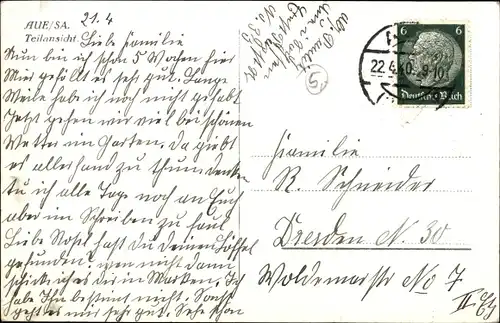 AUE/SA.
Teilansicht
21.4
Liebe Familie
Nun bin ich schon 5 Wochen hier
Mir gefällt es sehr gut. Lange
Weile hab ich noch nicht gehabt
Jetzt gehen wir viel bei schönen
Wetter im Garten. Da giebt
es allerhand zu thun denken
tu ich alle Tage noch an Euch
aber im Schreiben zu faul
Liebe Rosel hast du deinen Löffel
gefunden? wen nicht dann
schick ich es dir in Marken. Ich
hab Ihn bestimmt nicht. Sonst
geht es mir sehr gut. Sehe schon
5
6 6
Deutsches Reich
22.4.40
Familie
R. Schneider
Dresden N. 30
Woldemarstr No 7